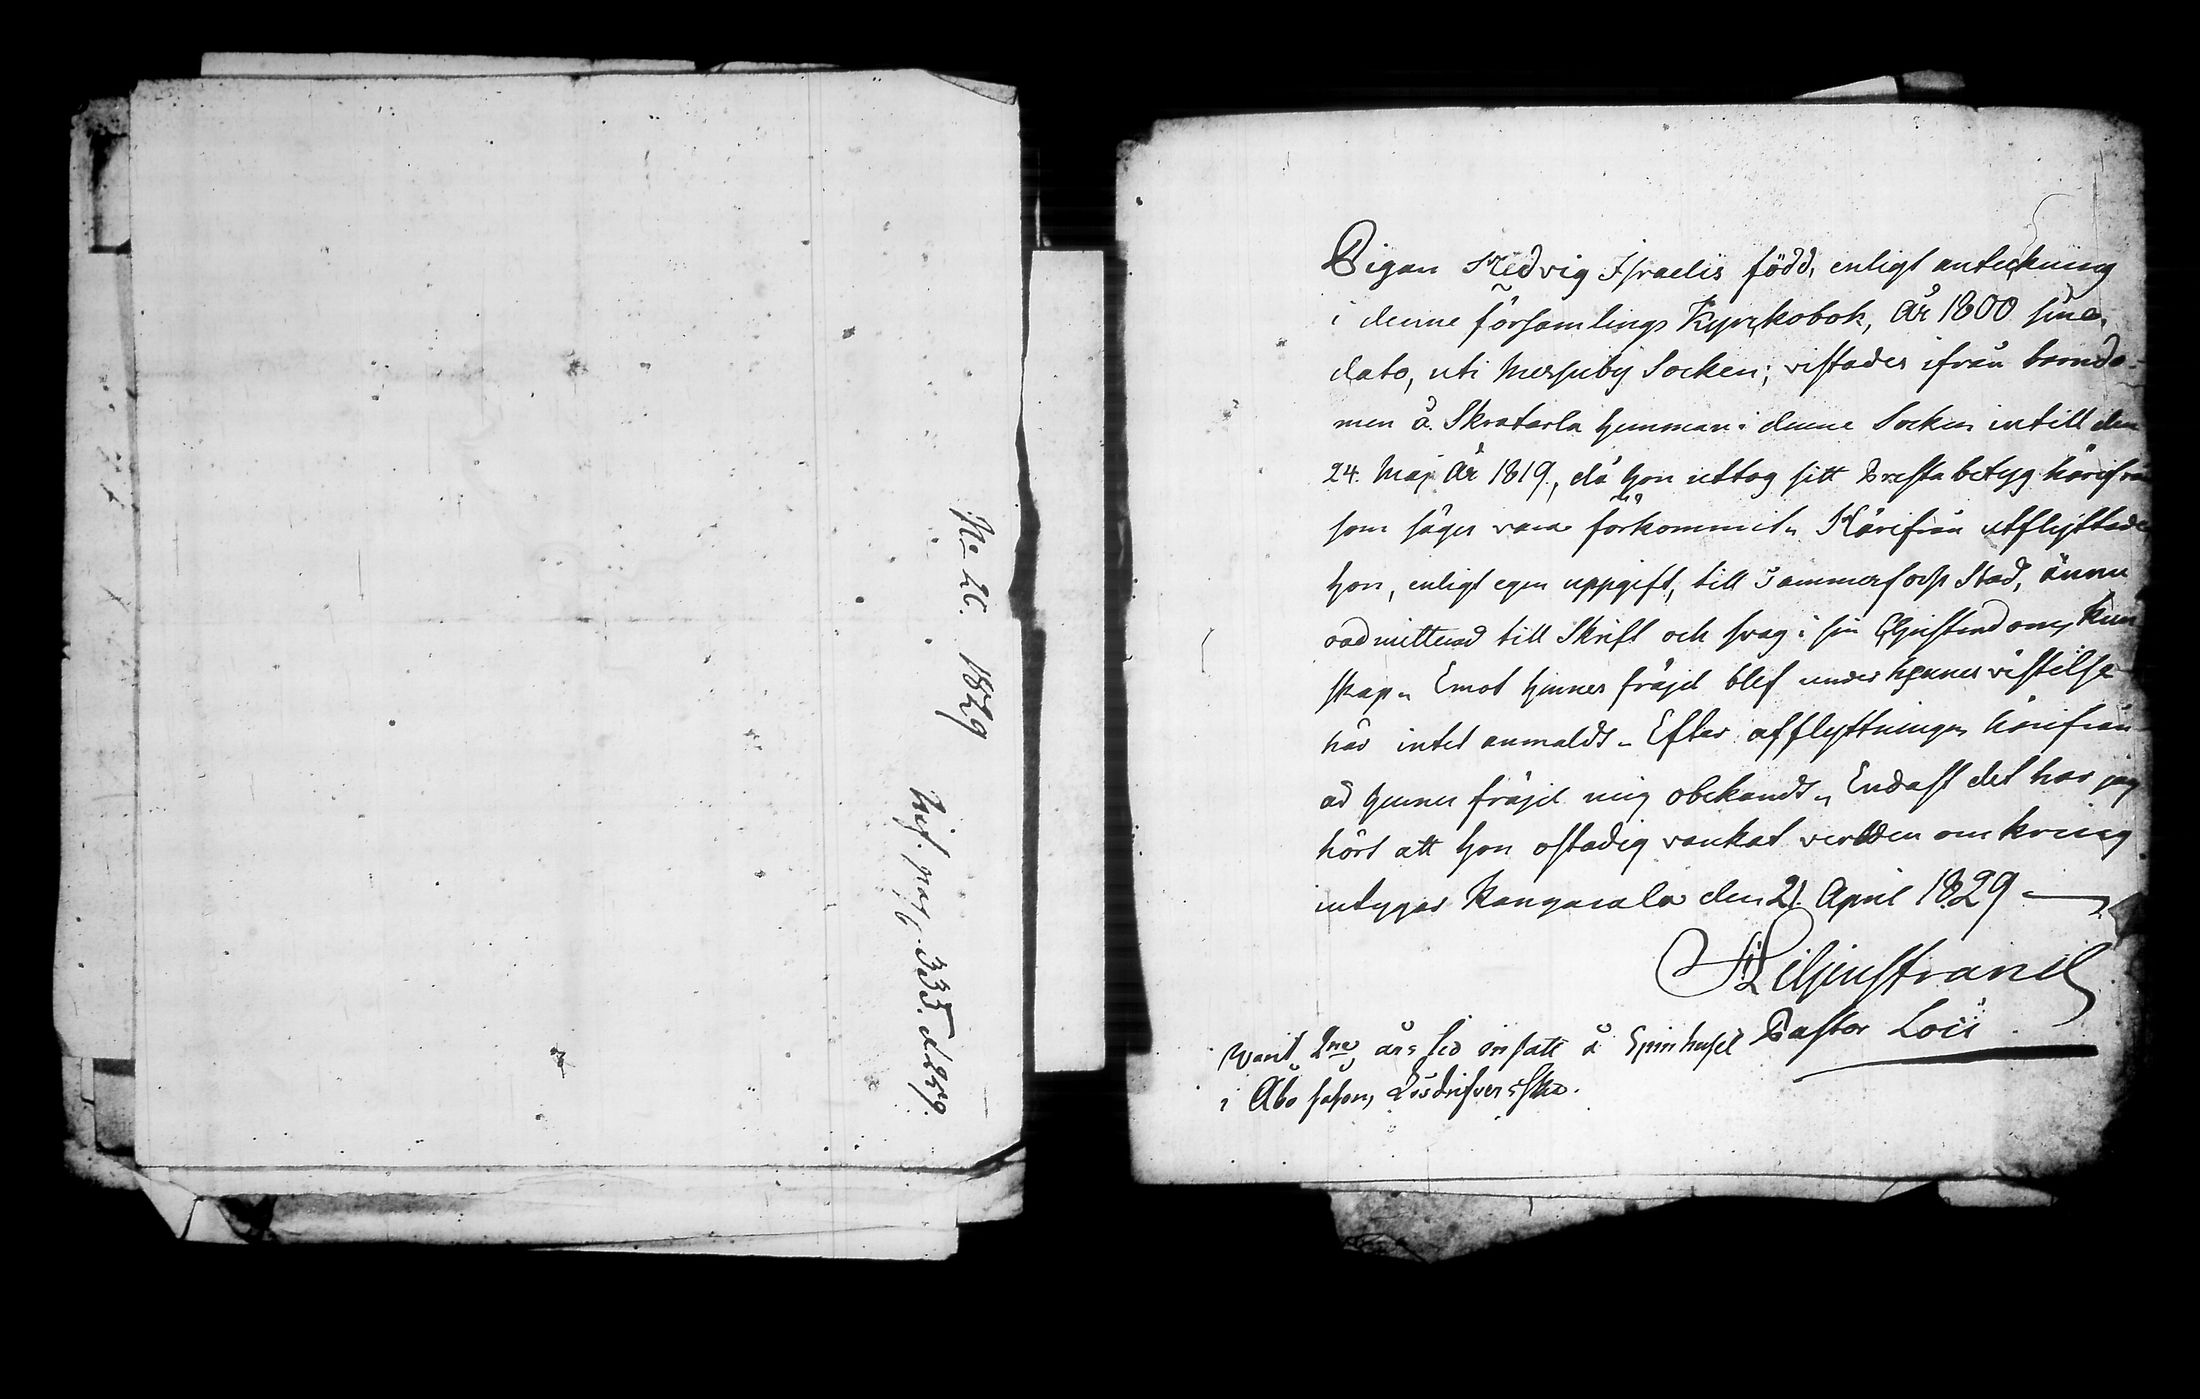 No 26. 1829
Pigan Hedvig Israelis född, enligt anteckning
i denne församlings Kyrckobok, År 1800 sine
dato, uti Messuby Socken; vistades ifrån barndo-
men å Skratarla hemman i denne Socken intill den
24. Maj År 1819, då hon uttog sitt Prestabetyg härifrån
som säges vara förkommit. Härifrån utflyttade
hon, enligt egen uppgift, till Tammerfors Stad, ännu
oadmitterad till Skrift och svag i sin Christendoms kun
skap. Emot hennes fräjd blef under hennes vistelse
här intet anmäldt. Efter afflyttningen härifrån
är hennes fräjd mig obekandt. Endast det har jag
hört att hon ostadig vankat verlden omkring
intygar Kangasala den 21 April 1829
Liljenstrand
Pastor Loci
varit 2ne års tid insatt å Spinhuset
i Åbo såsom Lösdrifverska.